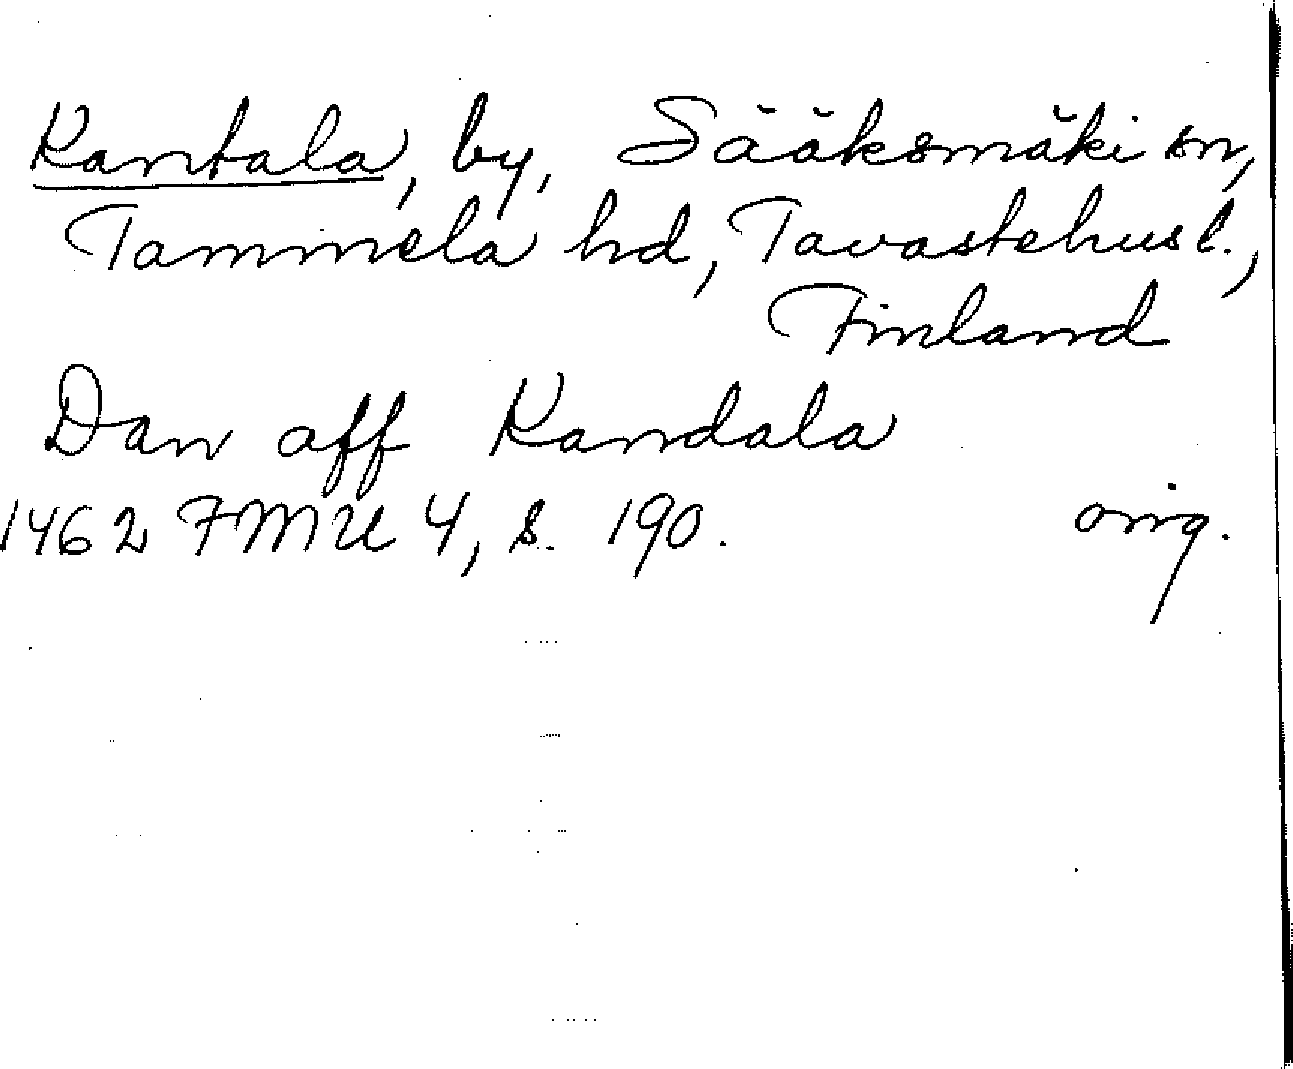 Kantala, by, Sääksmäki sn,
Tammela hd, Tavastehus l.,
Finland
Dan aff Kandala
1462 FMU 4, s. 190. orig.